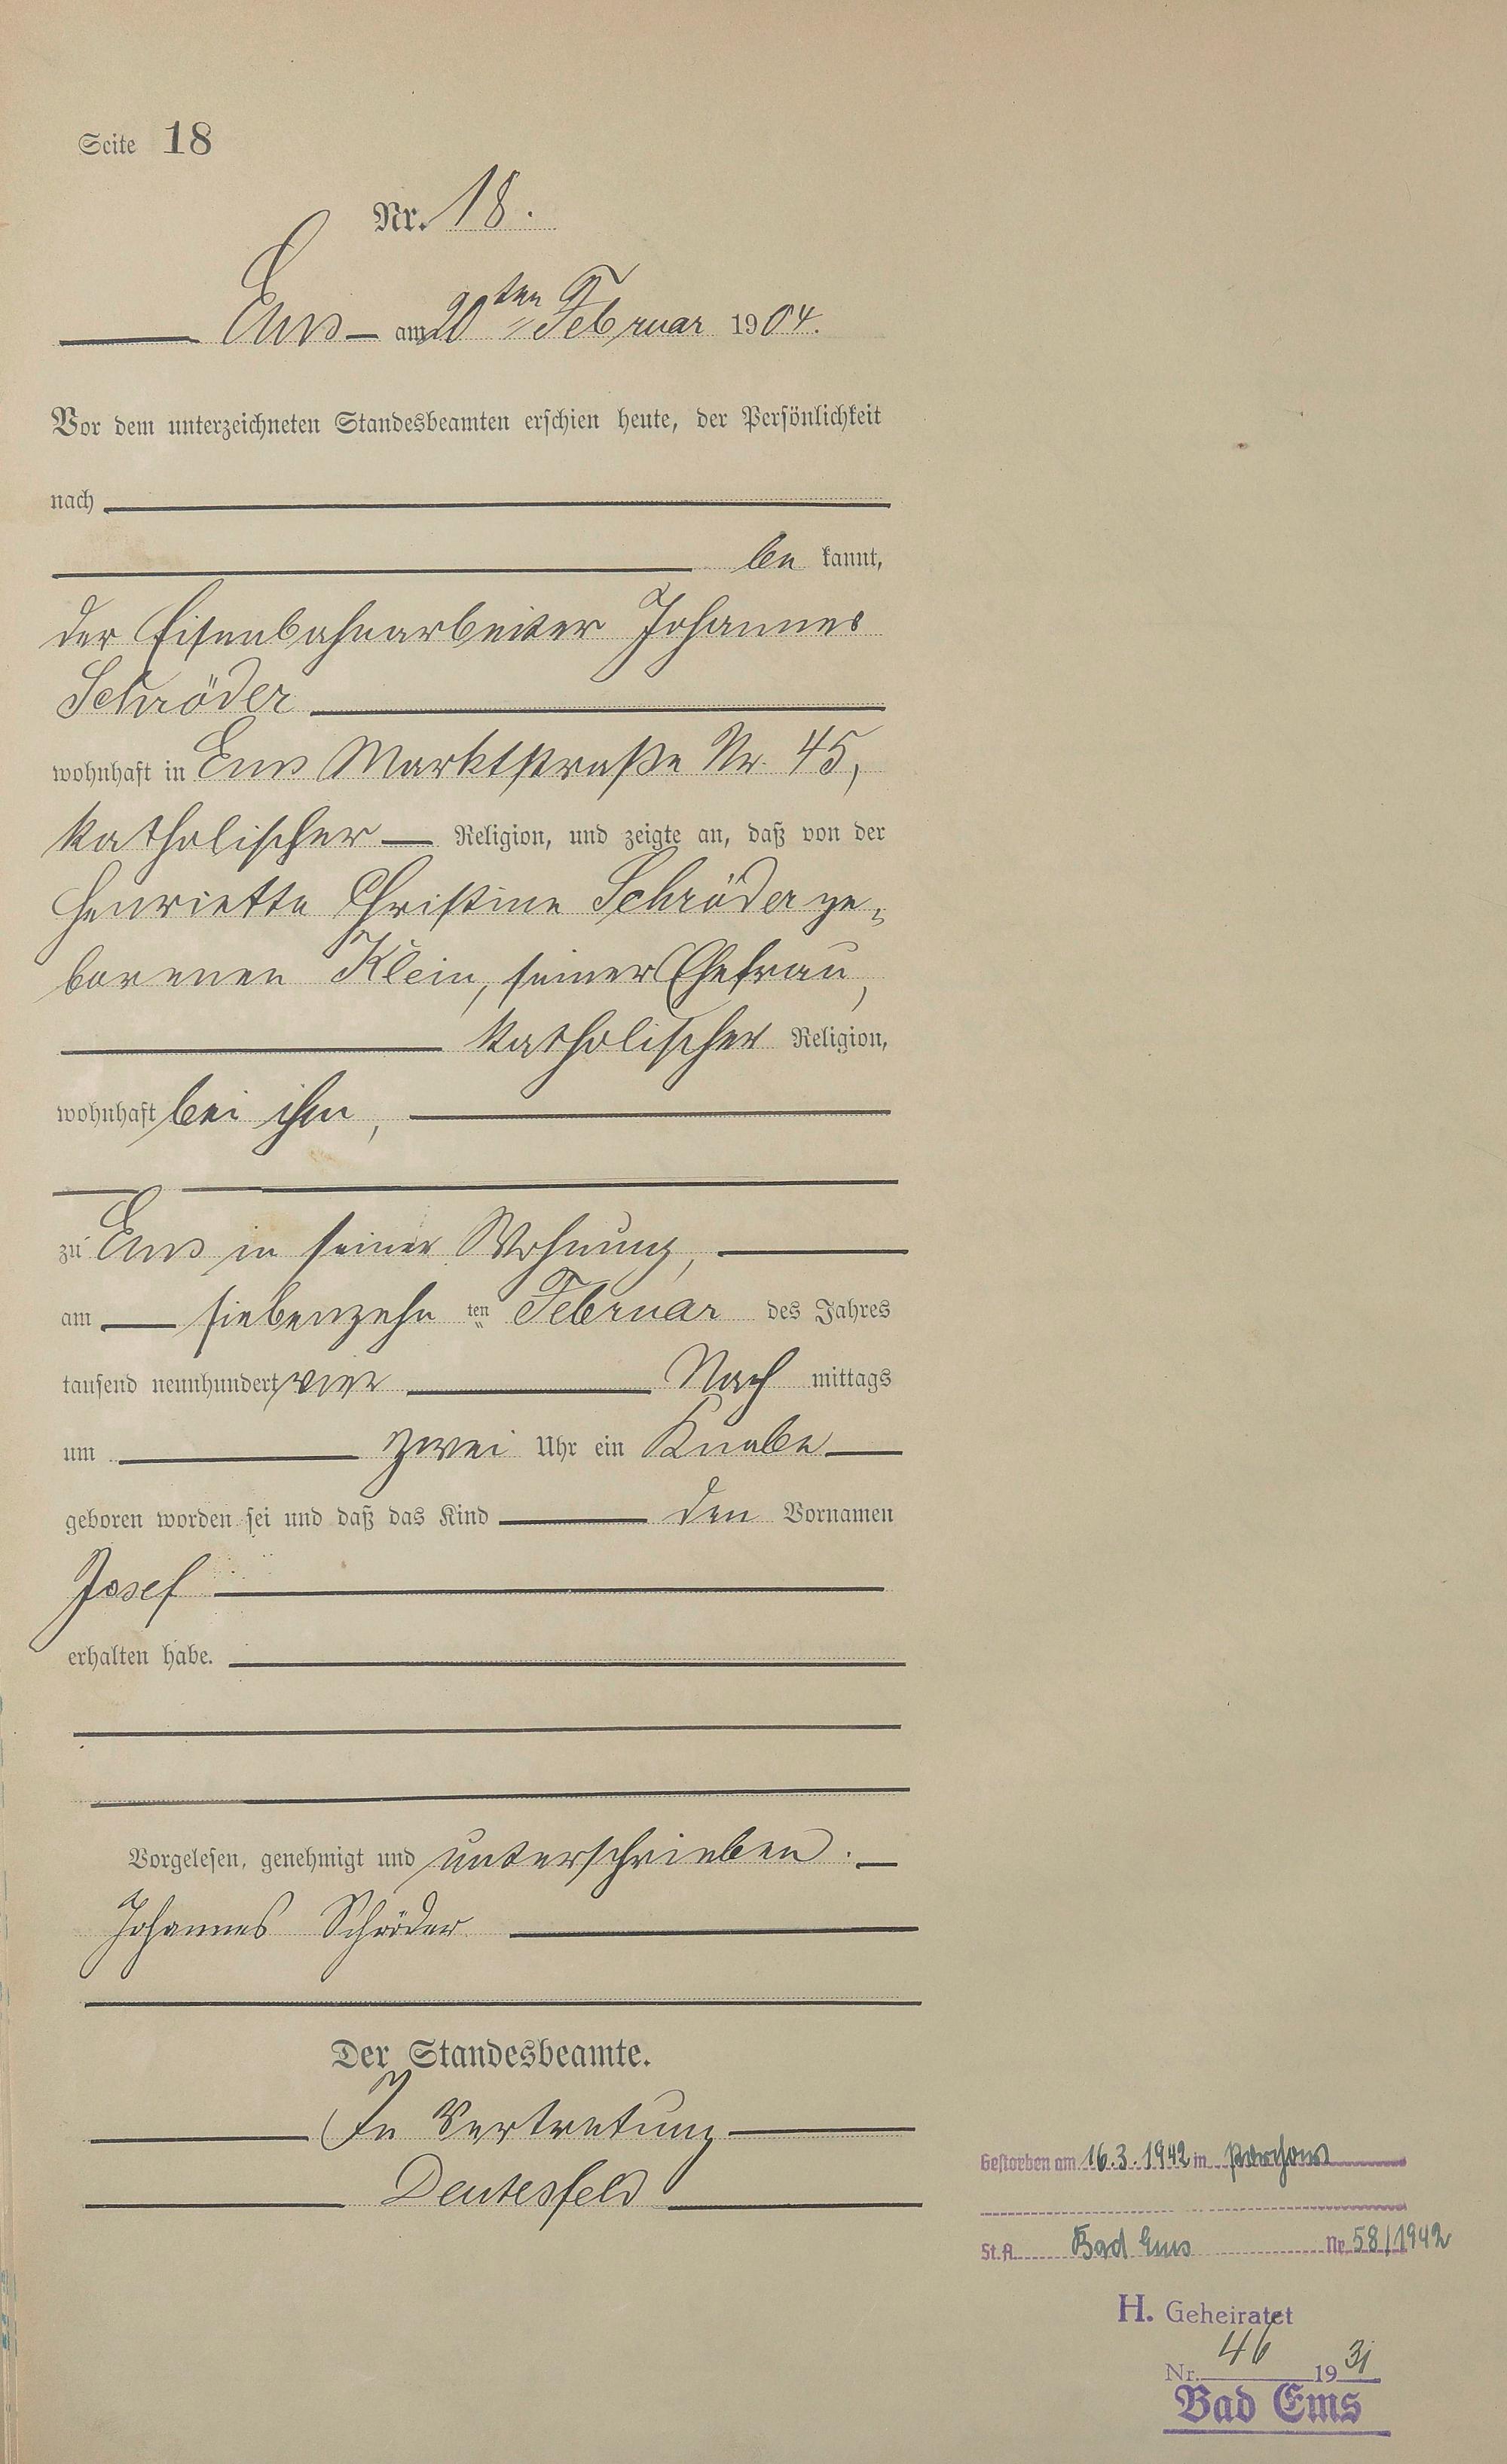 Seite 18
Nr. 18.
Ems am 20ten Februar 1904.
Vor dem unterzeichneten Standesbeamten erschien heute, der Persönlichkeit
nach
be kannt,
der Eisenbahnarbeiter Johannes
Schröder
wohnhaft in Ems Marktstraße Nr. 45,
katholischer Religion, und zeigte an, daß von der
Henriette Christine Schröder ge-
borenen Klein, seiner Ehefrau,
katholischer Religion,
wohnhaft bei ihm,
zu Ems in seiner Wohnung,
am siebenzehn ten Februar des Jahres
tausend neunhundert vier Nach mittags
um zwei Uhr ein Knabe
geboren worden sei und daß das Kind den Vornamen
Josef
erhalten habe.
Vorgelesen, genehmigt und unterschrieben.
Johannes Schröder
Der Standesbeamte.
In Vertretung
Deutesfeld
Gestorben am 16.3.1942 in
St.A. Bad Ems Nr. 58/1942
H. Geheiratet
Nr. 46 1931
Bad Ems